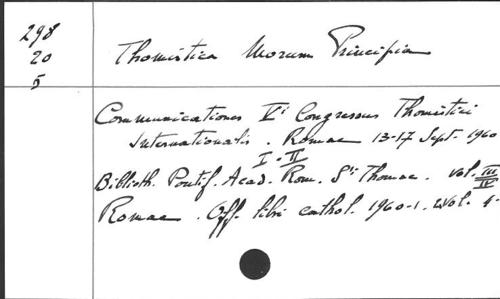 298
20
5
Thomistica Morum Principia
Communicationes Vi Congressus Thomistici
Internationalis. Romae 13-17 Sept. 1960
I-II
Biblioth. Pontif. Acad. Rom. Sti Thomae. Vol. III
IV
Romae. Off. libri cathol. 1960-1. 2 Vol. 4-